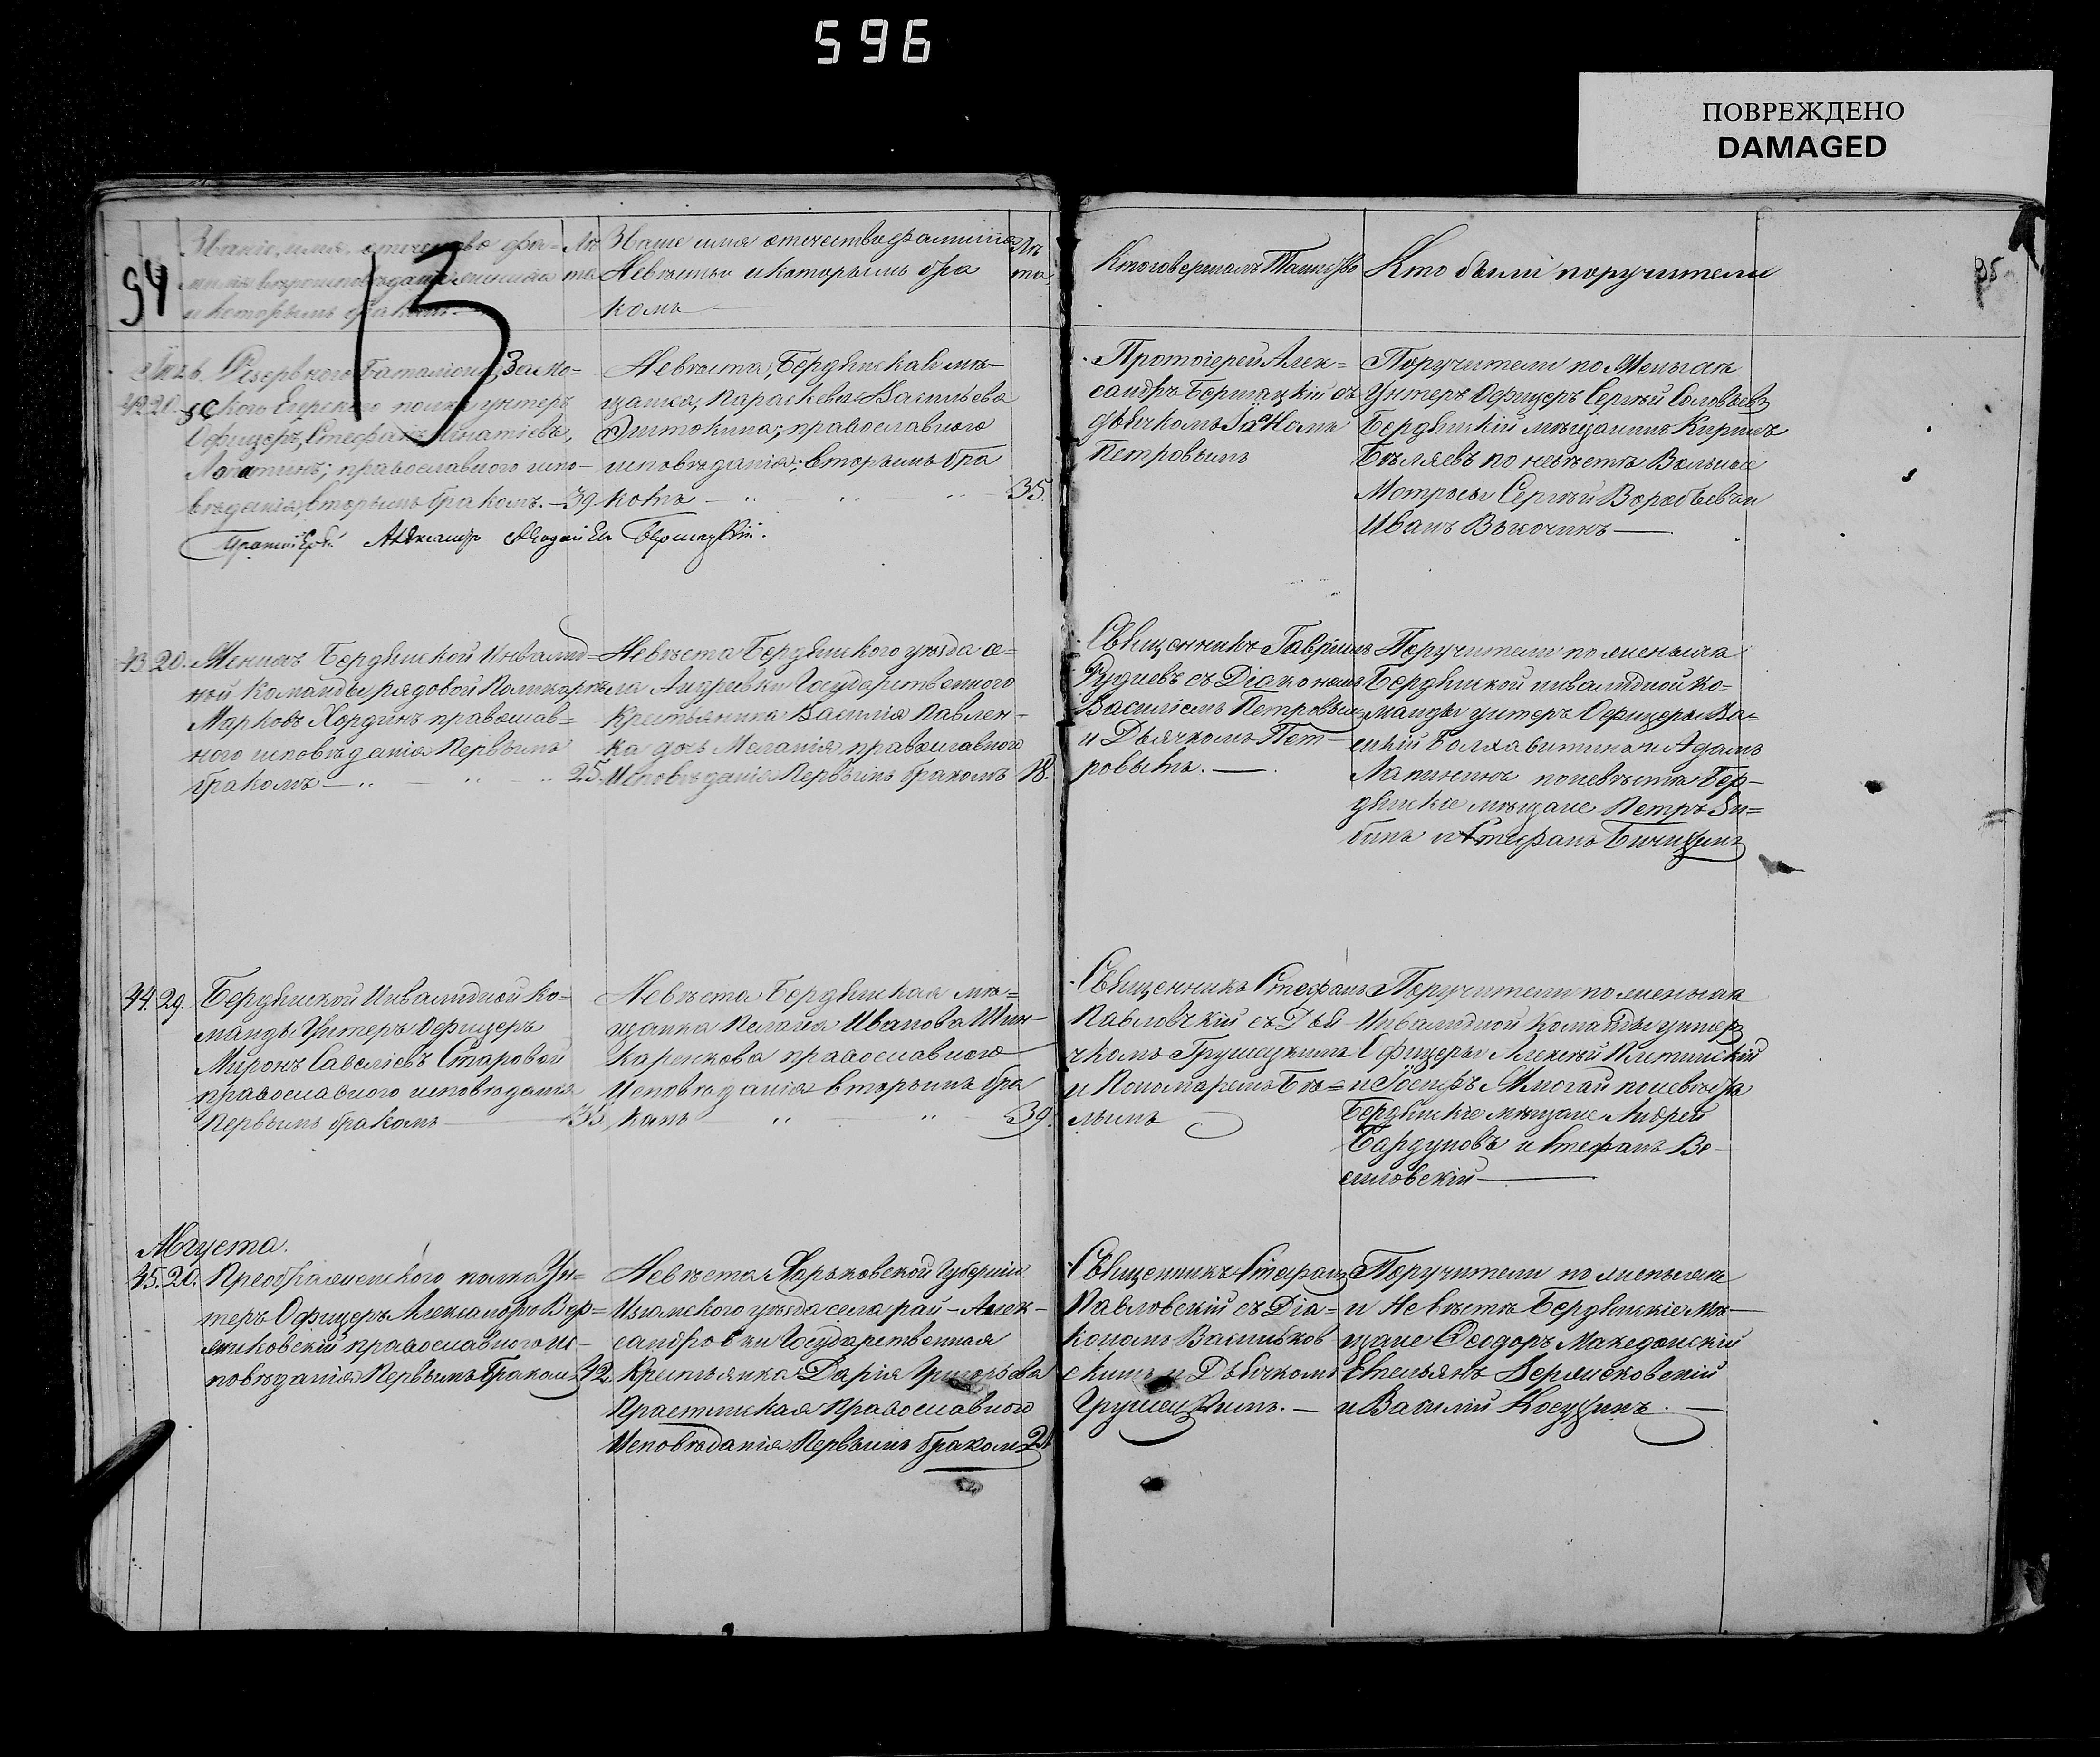 596
ПОВРЕЖДЕНО
DAMAGED
94
13
Званіе, имя, отечество фа=
милія вѣроисповѣданіе жениха
и которымъ бракомъ.
Лѣ
та.
Званіе имя отечество фамилія
Невѣсты и которымъ бра
комъ
Лѣ
та
Кто совершалъ Таинство
Кто были поручители
95
42 20.
Резервнаго Баталіона, Замо=
скаго Егерскаго полка унтеръ
Офицеръ, Стефанъ Игнатіевъ,
Лопатинъ; православнаго испо-
вѣданія, вторымъ бракомъ. — 39
Невѣста, Бердянская мѣ-
щанка, Параскева Васильева
православнаго
исповѣданія; вторымъ бра
комъ — 35.
Протоіерей Александр Бершацкій.
Протоіерей Алек=
сандръ Бершацкій съ
дьячкомъ Іоанномъ
Петровымъ
Поручители по Женихѣ
Унтеръ Офицеръ Сергѣй Соловьевъ
Бердянскій мѣщанинъ Кирилъ
Бѣляевъ по невѣстѣ Вольные
Матросы Сергѣй Воробьевъ и
Иванъ
43. 20.
Женихъ Бердянской Инвалид=
ной Команды рядовой Поликарпъ
Марковъ Хординъ православ=
наго исповѣданія Первымъ
бракомъ — 25.
Невѣста Бердянскаго уѣзда се=
ла Андреевки Государственнаго
Крестьянина Василія Павлен-
ка дочь Меланія православнаго
Исповѣданія Первымъ бракомъ 18.
Священникъ Гавріилъ
Рудневъ съ Діакономъ
Василіемъ Петровымъ
и Дьячкомъ Пет-
ровымъ. —
Поручители по женихѣ
Бердянской инвалидной ко=
манды унтеръ Офицеры Ва=
силій и Адамъ
по невѣстѣ Бер-
дянскіе мѣщане Петръ Зы=
бинъ и Стефанъ
44. 29.
Бердянской Инвалидной Ко=
манды Унтеръ Офицеръ
Миронъ Савеліевъ Старовой
православнаго исповѣданія
Первымъ бракомъ — 35.
Невѣста Бердянская мѣ=
щанка Пелагія Иванова Шин-
каренкова православнаго
Исповѣданія вторымъ бра
комъ 39.
Священникъ Стефанъ
Павловскій съ Дья-
чкомъ Грушецкимъ
и Пономаремъ Бѣ=
лымъ
Поручители по женихѣ
Инвалидной Команды унтеръ
Офицеры Алексѣй
и Іосифъ по невѣстѣ
Бердянскіе мѣщане Андрей
Бардуновъ и Стефанъ Ве-
силовскій —
Августа.
45. 20.
Преображенскаго полка Ун=
теръ Офицеръ Александръ Вер=
жиковскій православнаго ис-
повѣданія Первымъ Бракомъ 42.
Невѣста Харьковской Губерніи
Изюмскаго уѣзда села рай-Алек-
сандровки Государственная
Крестьянка Дарія Григорьева
Православнаго
Исповѣданія Первымъ бракомъ 21.
Священникъ Стефанъ
Павловскій съ Діа=
кономъ Васильков
скимъ и Дьячкомъ
Грушецкимъ. —
Поручители по женихѣ
и Невѣстѣ Бердянскіе мѣ-
щане Ѳеодоръ Македонскій
Емельянъ
и Василій Косухинъ. —